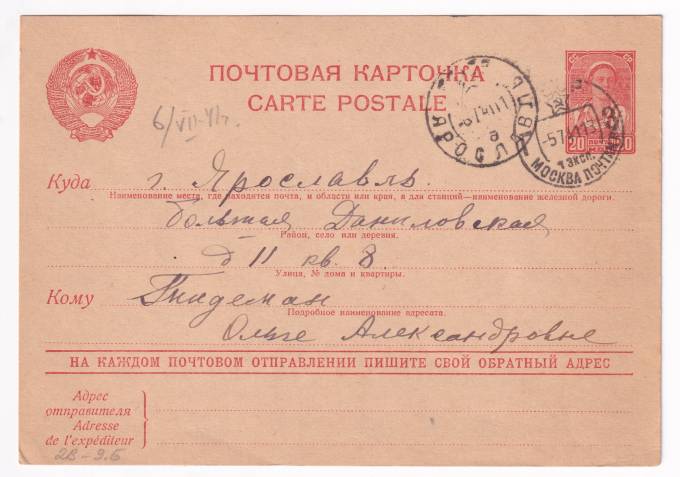 ПОЧТОВАЯ КАРТОЧКА
CARTE POSTALE
6/VII-41г.
ЯРОСЛАВЛЬ
-5.7.41 13
1 ЭКСП.
МОСКВА ПОЧТАМТ
20 20
Куда г. Ярославль.
Наименование места, где находится почта, и области или края, а для станций—наименование железной дороги.
Большая Даниловская
Район, село или деревня.
д 11 кв. 8
Улица, № дома и квартиры.
Кому Тидеман
Подробное наименование адресата.
Ольге Александровне
НА КАЖДОМ ПОЧТОВОМ ОТПРАВЛЕНИИ ПИШИТЕ СВОЙ ОБРАТНЫЙ АДРЕС
Адрес
отправителя
Adresse
de l'expéditeur
2В-9.Б